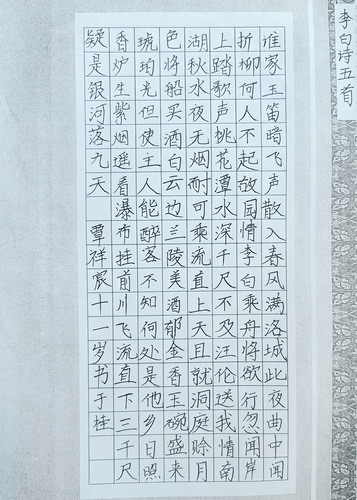 李白诗五首
谁家玉笛暗飞声散入春风满洛城此夜曲中闻
折柳何人不起故园情李白乘舟将欲行忽闻岸
上踏歌声桃花潭水深千尺不及汪伦送我情南
湖秋水夜无烟耐可乘流直上天且就洞庭赊月
色将船买酒白云边兰陵美酒郁金香玉碗盛来
琥珀光但使主人能醉客不知何处是他乡日照
香炉生紫烟遥看瀑布挂前川飞流直下三千尺
疑是银河落九天 覃祥宸十一岁书于桂